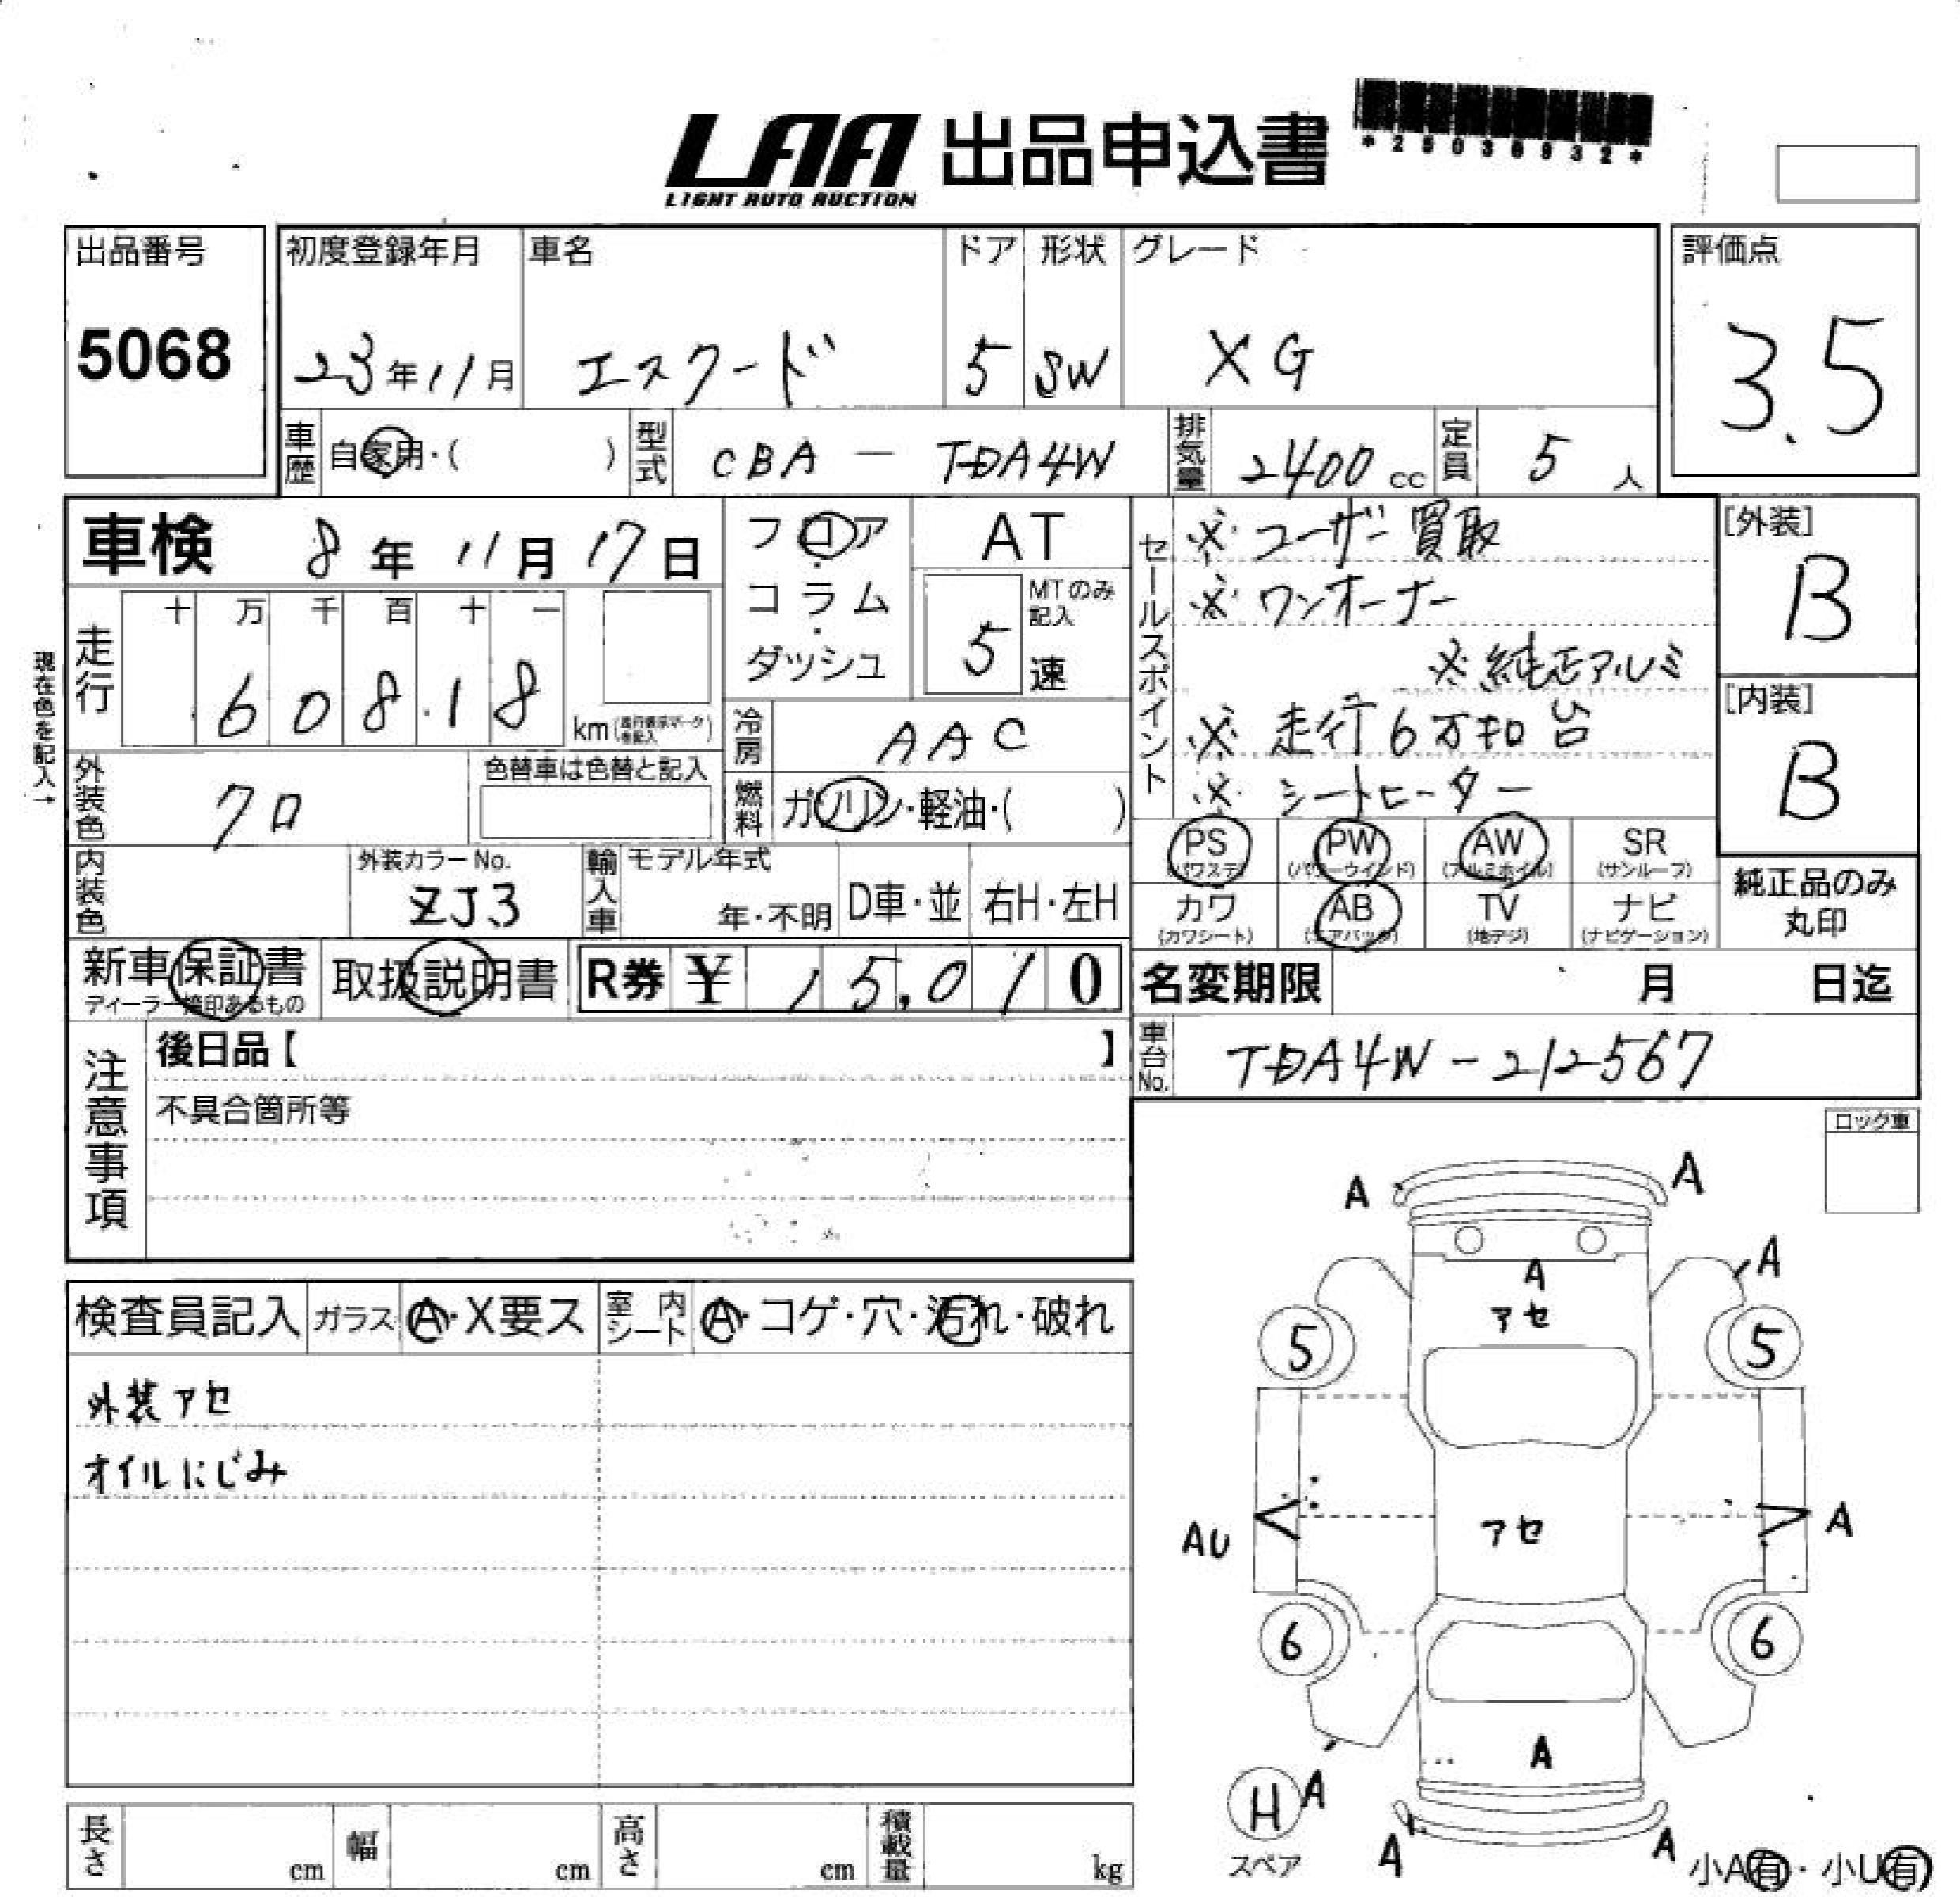 LAA 出品申込書
LIGHT AUTO AUCTION
*25036932*
出品番号
5068
初度登録年月
23年11月
車名
エスクード
ドア
5
形状
SW
グレード
XG
評価点
3.5
車歴 自家用・( )
型式 CBA - TDA4W
排気量 2400 cc
定員 5 人
車検 8年 11月 17日
フロア・コラム・ダッシュ
AT
MTのみ記入
5 速
セールスポイント
※ ユーザー買取
※ ワンオーナー
※ 純正アルミ
※ 走行6万キロ台
※ シートヒーター
[外装]
B
[内装]
B
現在色を記入→
走行
十 万 千 百 十 一
6 0 8 1 8 km(走行表示マークを記入)
冷房 AAC
燃料 ガソリン・軽油・( )
外装色 クロ
色替車は色替と記入
内装色
外装カラーNo.
ZJ3
輸入車
モデル年式
年・不明
D車・並
右H・左H
PS (パワステ)
PW (パワーウインド)
AW (アルミホイル)
SR (サンルーフ)
カワ (カワシート)
AB (エアバック)
TV (地デジ)
ナビ (ナビゲーション)
純正品のみ
丸印
新車保証書
ディーラー捺印あるもの
取扱説明書
R券 ¥ 15,010
名変期限 月 日迄
車台No. TDA4W-212567
注意事項
後日品【 】
不具合箇所等
ロック車
検査員記入
ガラス A・X要ス
室内シート A・コゲ・穴・汚れ・破れ
外装アセ
オイルにじみ
A A
A
A
アセ
5 5
アセ
AU A
6 6
A
H A
スペア
A A
小A有・小U有
長さ cm
幅 cm
高さ cm
積載量 kg